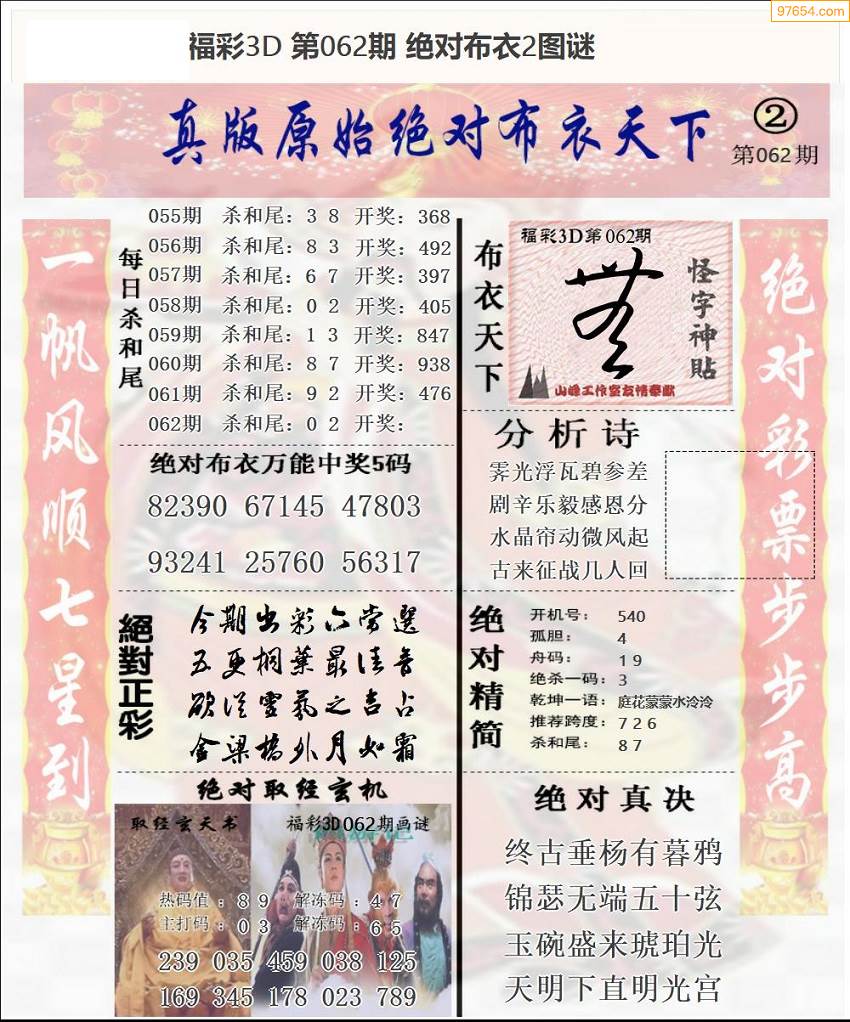 97654.com
福彩3D 第062期 绝对布衣2图谜
真版原始绝对布衣天下
②
第062期
一帆风顺七星到
每日杀和尾
055期 杀和尾：3 8 开奖：368
056期 杀和尾：8 3 开奖：492
057期 杀和尾：6 7 开奖：397
058期 杀和尾：0 2 开奖：405
059期 杀和尾：1 3 开奖：847
060期 杀和尾：8 7 开奖：938
061期 杀和尾：9 2 开奖：476
062期 杀和尾：0 2 开奖：
绝对布衣万能中奖5码
82390 67145 47803
93241 25760 56317
絕對正彩
今期出彩六常選
五更桐葉最佳音
欲從靈氣之吉占
金梁橋外月如霜
绝对取经玄机
取经玄天书
福彩3D062期画谜
热码值：8 9 解冻码：4 7
主打码：0 3 解冻码：6 5
239 035 459 038 125
169 345 178 023 789
布衣天下
福彩3D第062期
怪字神貼
山峰工作室友情奉献
分析诗
霁光浮瓦碧参差
剧辛乐毅感恩分
水晶帘动微风起
古来征战几人回
绝对精简
开机号： 540
孤胆： 4
舟码： 1 9
绝杀一码：3
乾坤一语：庭花蒙蒙水泠泠
推荐跨度：7 2 6
杀和尾： 8 7
绝对真决
终古垂杨有暮鸦
锦瑟无端五十弦
玉碗盛来琥珀光
天明下直明光宫
绝对彩票步步高